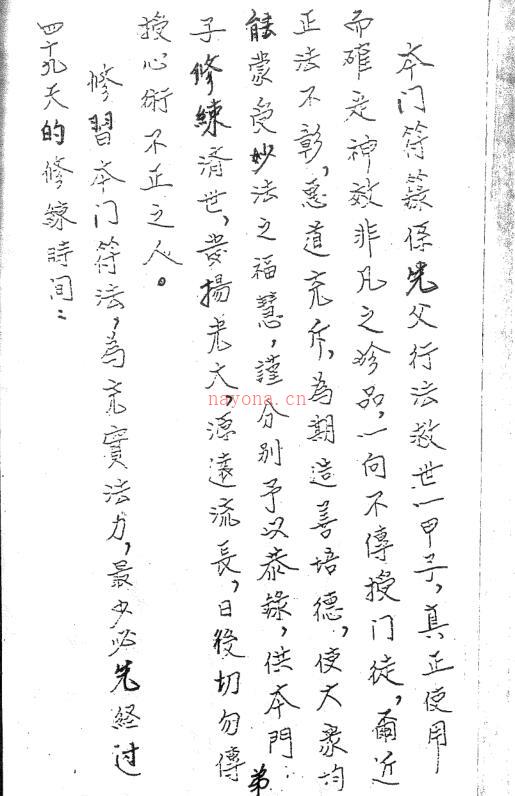 本门符籙係先父行法救世一甲子，真正使用
而確是神效非凡之珍品，一向不傳授门徒，爾近
正法不彰，惡道充斥，為期造善培德，使大眾均
能蒙受妙法之福慧，謹分别予以恭錄，供本門弟
子修練濟世，發揚光大，源遠流長，日後切勿傳
授心術不正之人。
修習本门符法，為充實法力，最少必先経过
四十九天的修錬時间：
nayona.cn